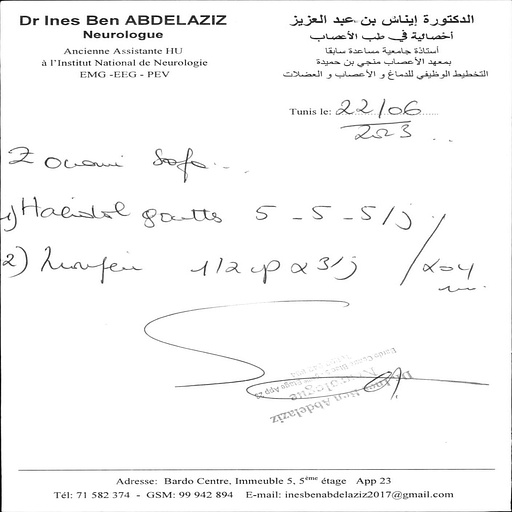 Dr Ines Ben ABDELAZIZ
Neurologue
Ancienne Assistante HU
à l'Institut National de Neurologie
EMG -EEG - PEV
الدكتورة إيناس بن عبد العزيز
أخصائية في طب الأعصاب
أستاذة جامعية مساعدة سابقا
بمعهد الأعصاب منجي بن حميدة
التخطيط الوظيفي للدماغ و الأعصاب و العضلات
Tunis le: 22/06
2023
Zouani
1) Haldol goutts 5 - 5 - 5/j
2) 1/2 cp x 3/j
Dr Ines Ben Abdelaziz
Neurologue
Adresse: Bardo Centre, Immeuble 5, 5ème étage App 23
Tél: 71 582 374 - GSM: 99 942 894 E-mail: inesbenabdelaziz2017@gmail.com